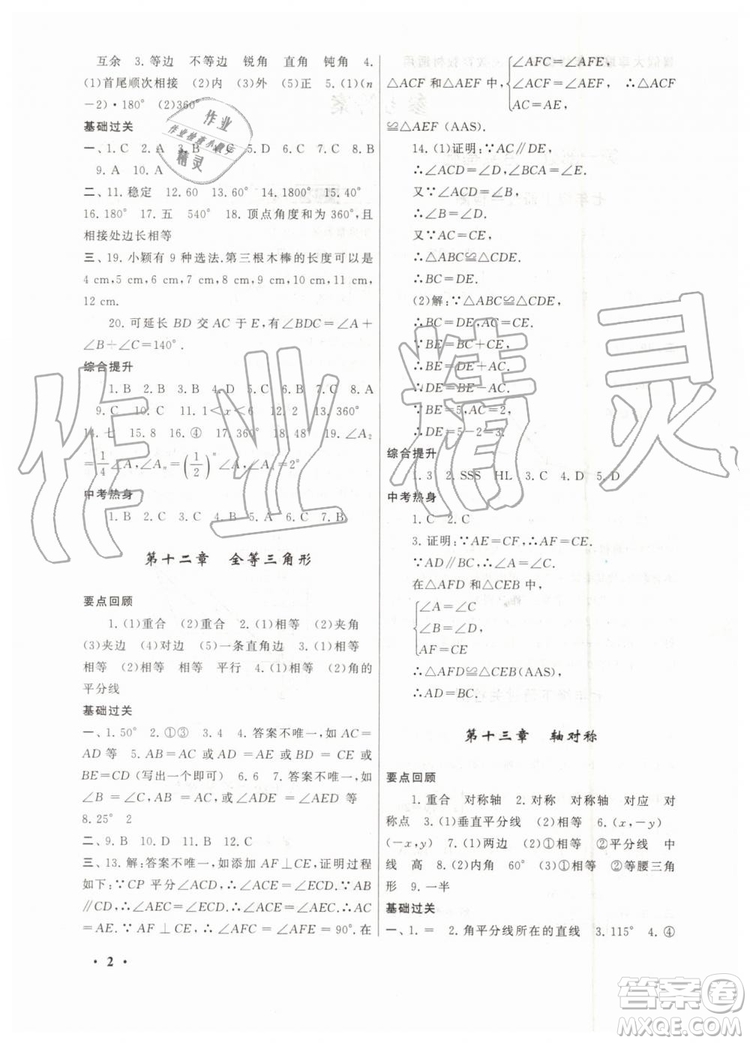 互余 3.等边 不等边 锐角 直角 钝角 4.
(1)首尾顺次相接 (2)内 (3)外 (5)正 (1)(n
-2)·180° (2)360°
基础过关
一、1.C 2.D 3.D 4.C 5.D 6.A 7.A 8.C
9.A 10.A
二、11.稳定 12.60 13.60° 14.1800° 15.40°
16.180° 17.五 540° 18.顶点角度和为360°,且
相接处边长相等
三、19.小颖有9种选法.第三根木棒的长度可以是
4 cm,5 cm,6 cm,7 cm,8 cm,9 cm,10 cm,11 cm,
12 cm.
20.可延长BD交AC于E,有∠BDC=∠A+
∠B+∠C=140°.
综合提升
1.B 2.C 3.B 4.D 5.B 6.C 7.B 8.A
9.C 10.C 11.1<x<6 12.5 13.100°
14.七 15.8 16.④ 17.40° 18.230° 19.∠A₂
=1/4∠A,∠Aₙ=(1/2)ⁿ∠A,∠A₆=2°
中考热身
1.B 2.C 3.B 4.B
第十二章 全等三角形
要点回顾
1.(1)重合 (2)重合 2.(1)相等 (2)夹角
(3)夹边 (4)对边 (5)一条直角边 3.(1)相等
相等 (2)相等 相等 平行 4.(1)相等 (2)角的
平分线
基础过关
一、1.50° 2.①③ 3.4 4.答案不唯一,如AC=
AD等 5.答案不唯一,如∠ACB=∠DBC或
BE=CD(写出一个即可) 6.6 7.答案不唯一,如
∠B=∠C,或∠ADE=∠AED或AD=AE等
8.25° 2
二、9.B 10.A 11.B 12.C
三、13.解:答案不唯一,如添加AF⊥CE,证明过程
如下:∵CP平分∠ACD,∴∠ACE=∠DCE.∵AB
∥CD,∴∠AEC=∠DCE.∴∠ACE=∠AEC.∴AC
=AE.∵AF⊥CE,∴∠AFC=∠AFE=90°.在
∠AFC=∠AFE
△ACF和△AEF中,∠ACF=∠AEF,∴△ACF
AC=AE
≌△AEF (AAS).
14.(1)证明:∵AC∥DE,
∴∠ACD=∠D,∠ACB=∠E.
又∵∠ACD=∠B,
∴∠B=∠D.
又∵AC=CE,
∴△ABC≌△CDE.
∴BC=DE.
(2)解:∵△ABC≌△CDE,
∴BC=DE=2,AB=CD=5.
又∵∠B=∠ACB,∠ACB=∠E,
∴∠B=∠E.
∴BE=5,AC=2,
∴DE=5-2=3.
综合提升
1.3 2.SSS HL 3.C 4.D 5.D
中考热身
1.C 2.C
3.证明:∵AE=CF,∴AF=CE.
∵AD∥BC,∴∠A=∠C.
在△AFD和△CEB中,
∠A=∠C
∠D=∠B
AF=CE
∴△AFD≌△CEB(AAS)
∴AD=BC.
第十三章 轴对称
要点回顾
1.重合 对称轴 2.对称 对称轴 对应 对
称点 4.(1)垂直平分线 (2)相等 6.(x,-y)
(-x,y) 7.(1)两边 (2)相等 ①相等 ②平分线 中
线 高 8.(2)内角 60° ①相等 ②等腰三角
形 9.一半
基础过关
一、1.= 2.角平分线所在的直线 3.115° 4.④
· 2 ·
作业
作业检查小帮手
精灵
作业精灵
答案卷
MXQE.COM